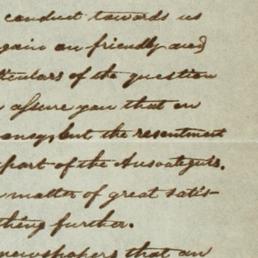 conduct towards us
again on friendly and
ticulars of the question
assure you that on
ansas, but the resentment
part of the
matter of great satis-
thing further.
newspapers that an